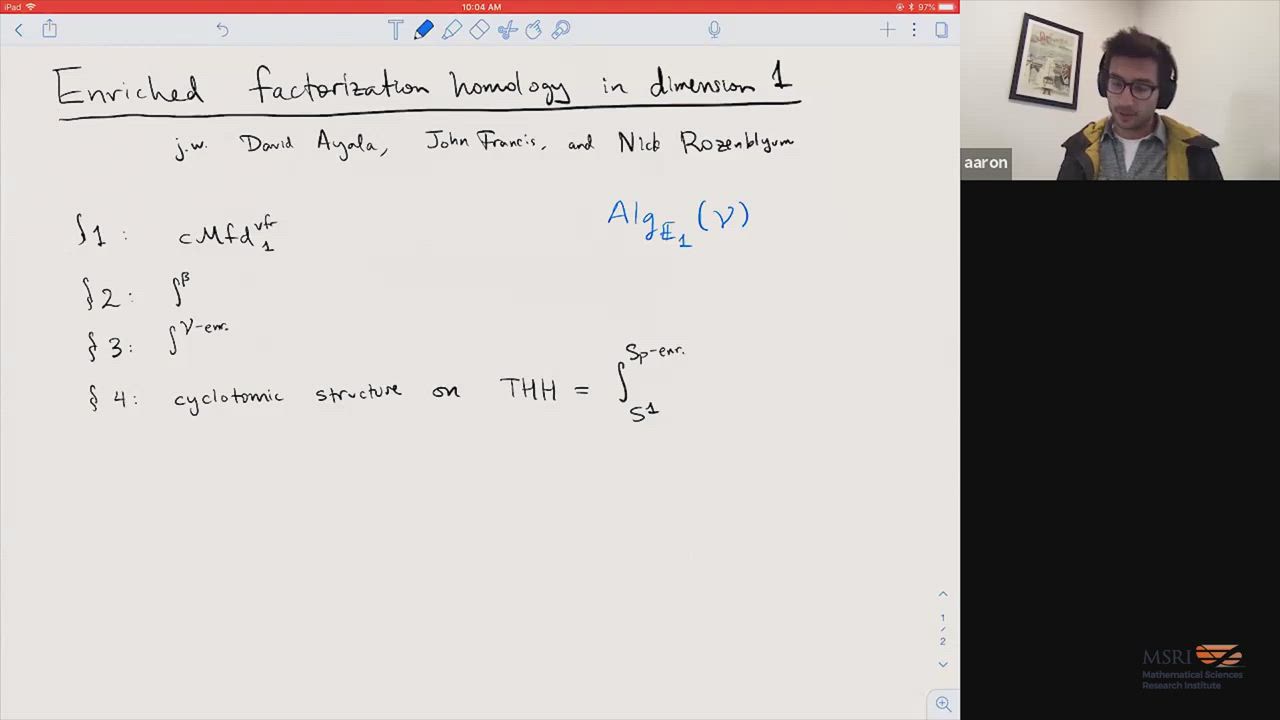 iPad
10:04 AM
97%
Enriched factorization homology in dimension 1
j.w. David Ayala, John Francis, and Nick Rozenblyum
§1: cMfd₁ᵛᶠʳ
Alg_{𝔼₁}(𝒱)
§2: ∫^β
§3: ∫^{𝒱-enr.}
§4: cyclotomic structure on THH = ∫_{S¹}^{Sp-enr.}
aaron
1
/
2
MSRI
Mathematical Sciences
Research Institute